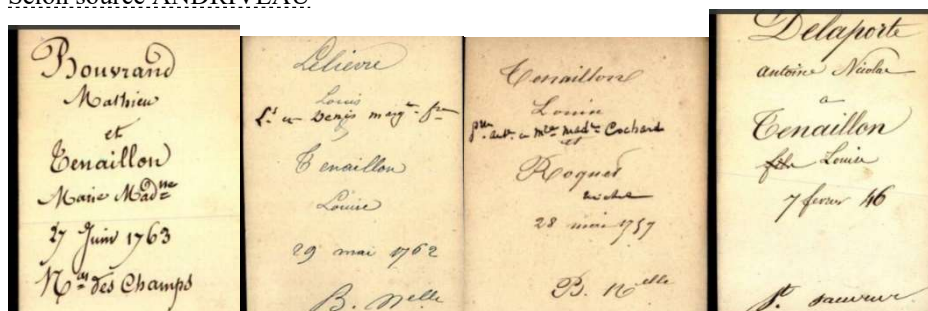 Selon source ANDRIVEAU
Bouvrand
Mathieu
et
Tenaillon
Marie Mad^ne
27 Juin 1763
N^as des Champs
Lelievre
Louis
L^s u Denis marg^te
Tenaillon
Louise
29 mai 1762
B. N^elle
Tenaillon
Louise
Mad^ne Cochard
et
Roques
Michel
28 mai 1757
B. N^elle
Delaporte
Antoine Nicolas
a
Tenaillon
Louise
7 fevrier 46
S^t Sauveur